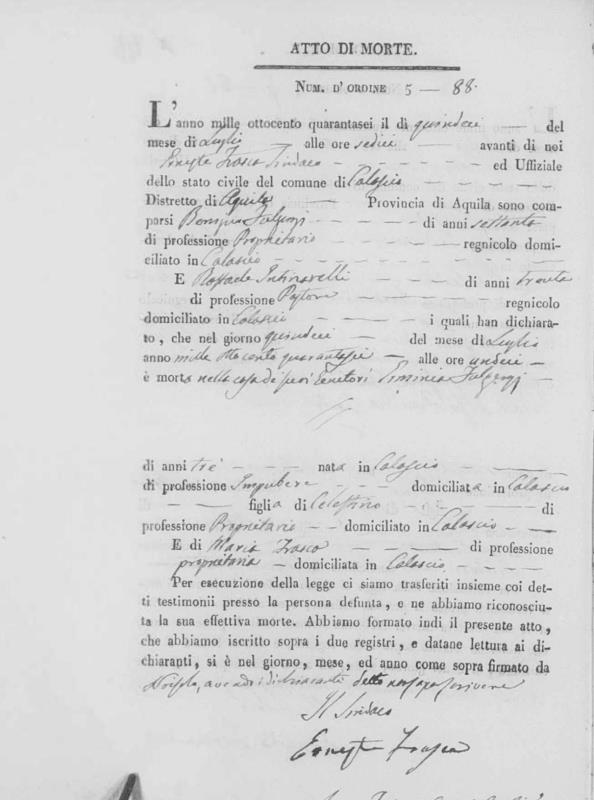 ATTO DI MORTE.
NUM. D' ORDINE 5 — 88.
L'anno mille ottocento quarantasei il dì quindeci — del
mese di Luglio — alle ore sedici — avanti di noi
Erneste Frasca Sindaco — ed Uffiziale
dello stato civile del comune di Calascio — — — —
Distretto di Aquila — Provincia di Aquila sono com-
parsi Benigno Fulgenzi — — di anni settanta
di professione Proprietario — — — — regnicolo domi-
ciliato in Calascio — — — —
E Raffaele — — di anni trenta
di professione Pastore — — — regnicolo
domiciliato in Calascio — — — i quali han dichiara-
to, che nel giorno quindeci — del mese di Luglio
anno mille otto cento quarantasei — alle ore undeci —
è morta nella casa de' suoi Genitori Erminia Fulgenzi —
di anni tre — — — nata in Calascio — — —
di professione Impubere — — — domiciliata in Calascio
— — figlia di Celestino — — — — di
professione Proprietario — — domiciliato in Calascio — —
E di Maria Frasca — — — di professione
proprietaria — domiciliata in Calascio — —
Per esecuzione della legge ci siamo trasferiti insieme coi det-
ti testimonii presso la persona defunta, e ne abbiamo riconosciu-
ta la sua effettiva morte. Abbiamo formato indi il presente atto,
che abbiamo iscritto sopra i due registri, e datane lettura ai di-
chiaranti, si è nel giorno, mese, ed anno come sopra firmato da
dichiaranti detto non saper scrivere
Il Sindaco
Erneste Frasca